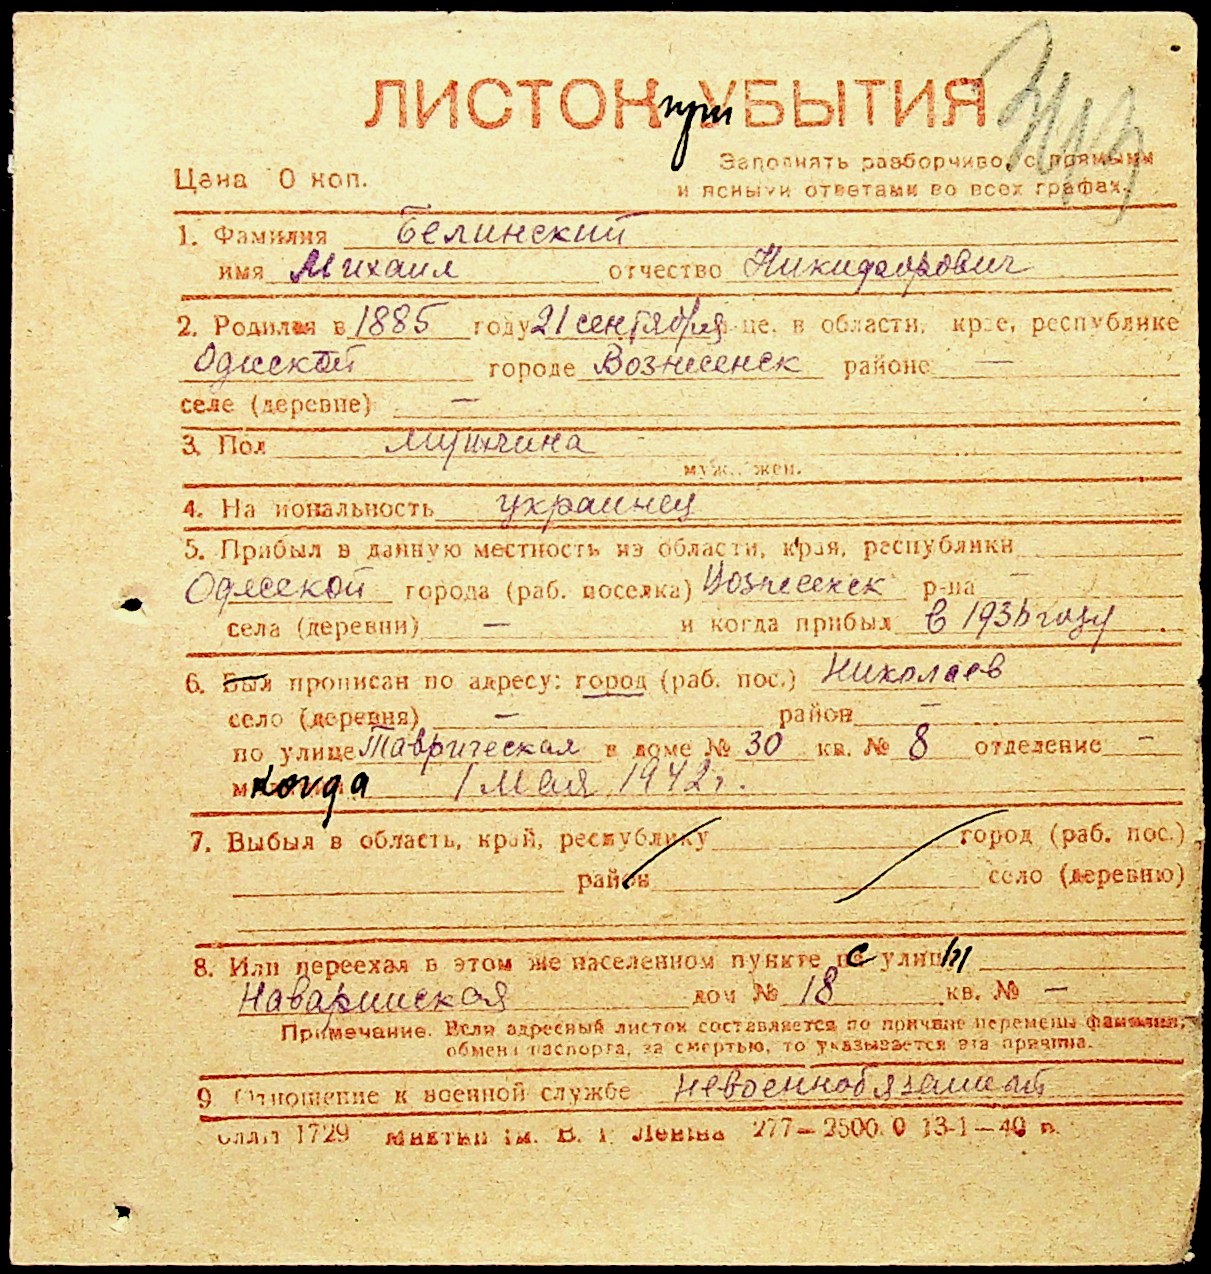 ЛИСТОК при УБЫТИЯ
Цена 0 коп.
Заполнять разборчиво, с прямыми
и ясными ответами во всех графах.
1. Фамилия Белинский
имя Михаил отчество Никифорович
2. Родился в 1885 году 21 сентября це. в области, крае, республике
Одесской городе Вознесенск районе —
селе (деревне) —
3. Пол мужчина
муж., жен.
4. На иональность украинец
5. Прибыл в данную местность из области, края, республики
Одесской города (раб. поселка) Вознесенск р-на —
села (деревни) — и когда прибыл в 193 году
6. Был прописан по адресу: город (раб. пос.) Николаев
село (деревня) — район —
по улице Таврическая в доме № 30 кв. № 8 отделение —
когда 1 мая 1942 г.
7. Выбыл в область, край, республику город (раб. пос.)
район село (деревню)
8. Или переехал в этом же населенном пункте с улицы
Наваринская дом № 18 кв. № —
Примечание. Если адресный листок составляется по причине перемены фамилии,
обмена паспорта, за смертью, то указывается эта причина.
9 Отношение к военной службе невоеннобязанный
1729 ім. В. І Леніна 277—2500. 0 13-1—40 р.